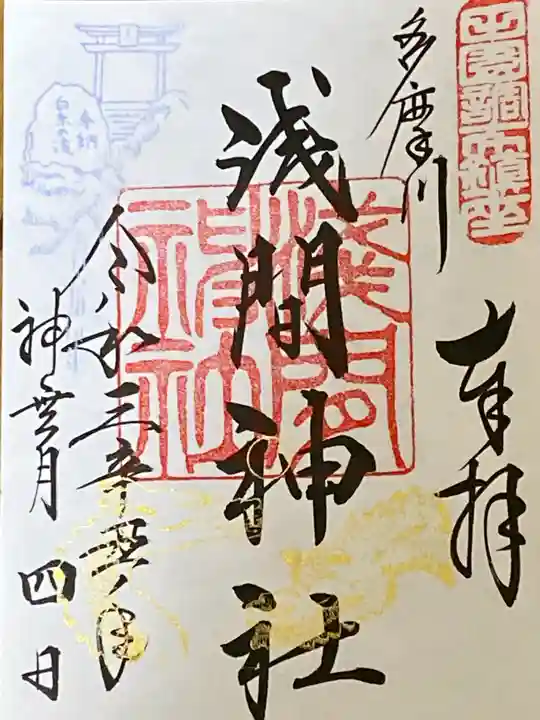 田園調布鎮座
奉拝
多摩川
浅間神社
浅間神社
令和三辛丑年
神無月 四日
奉納
白糸の滝